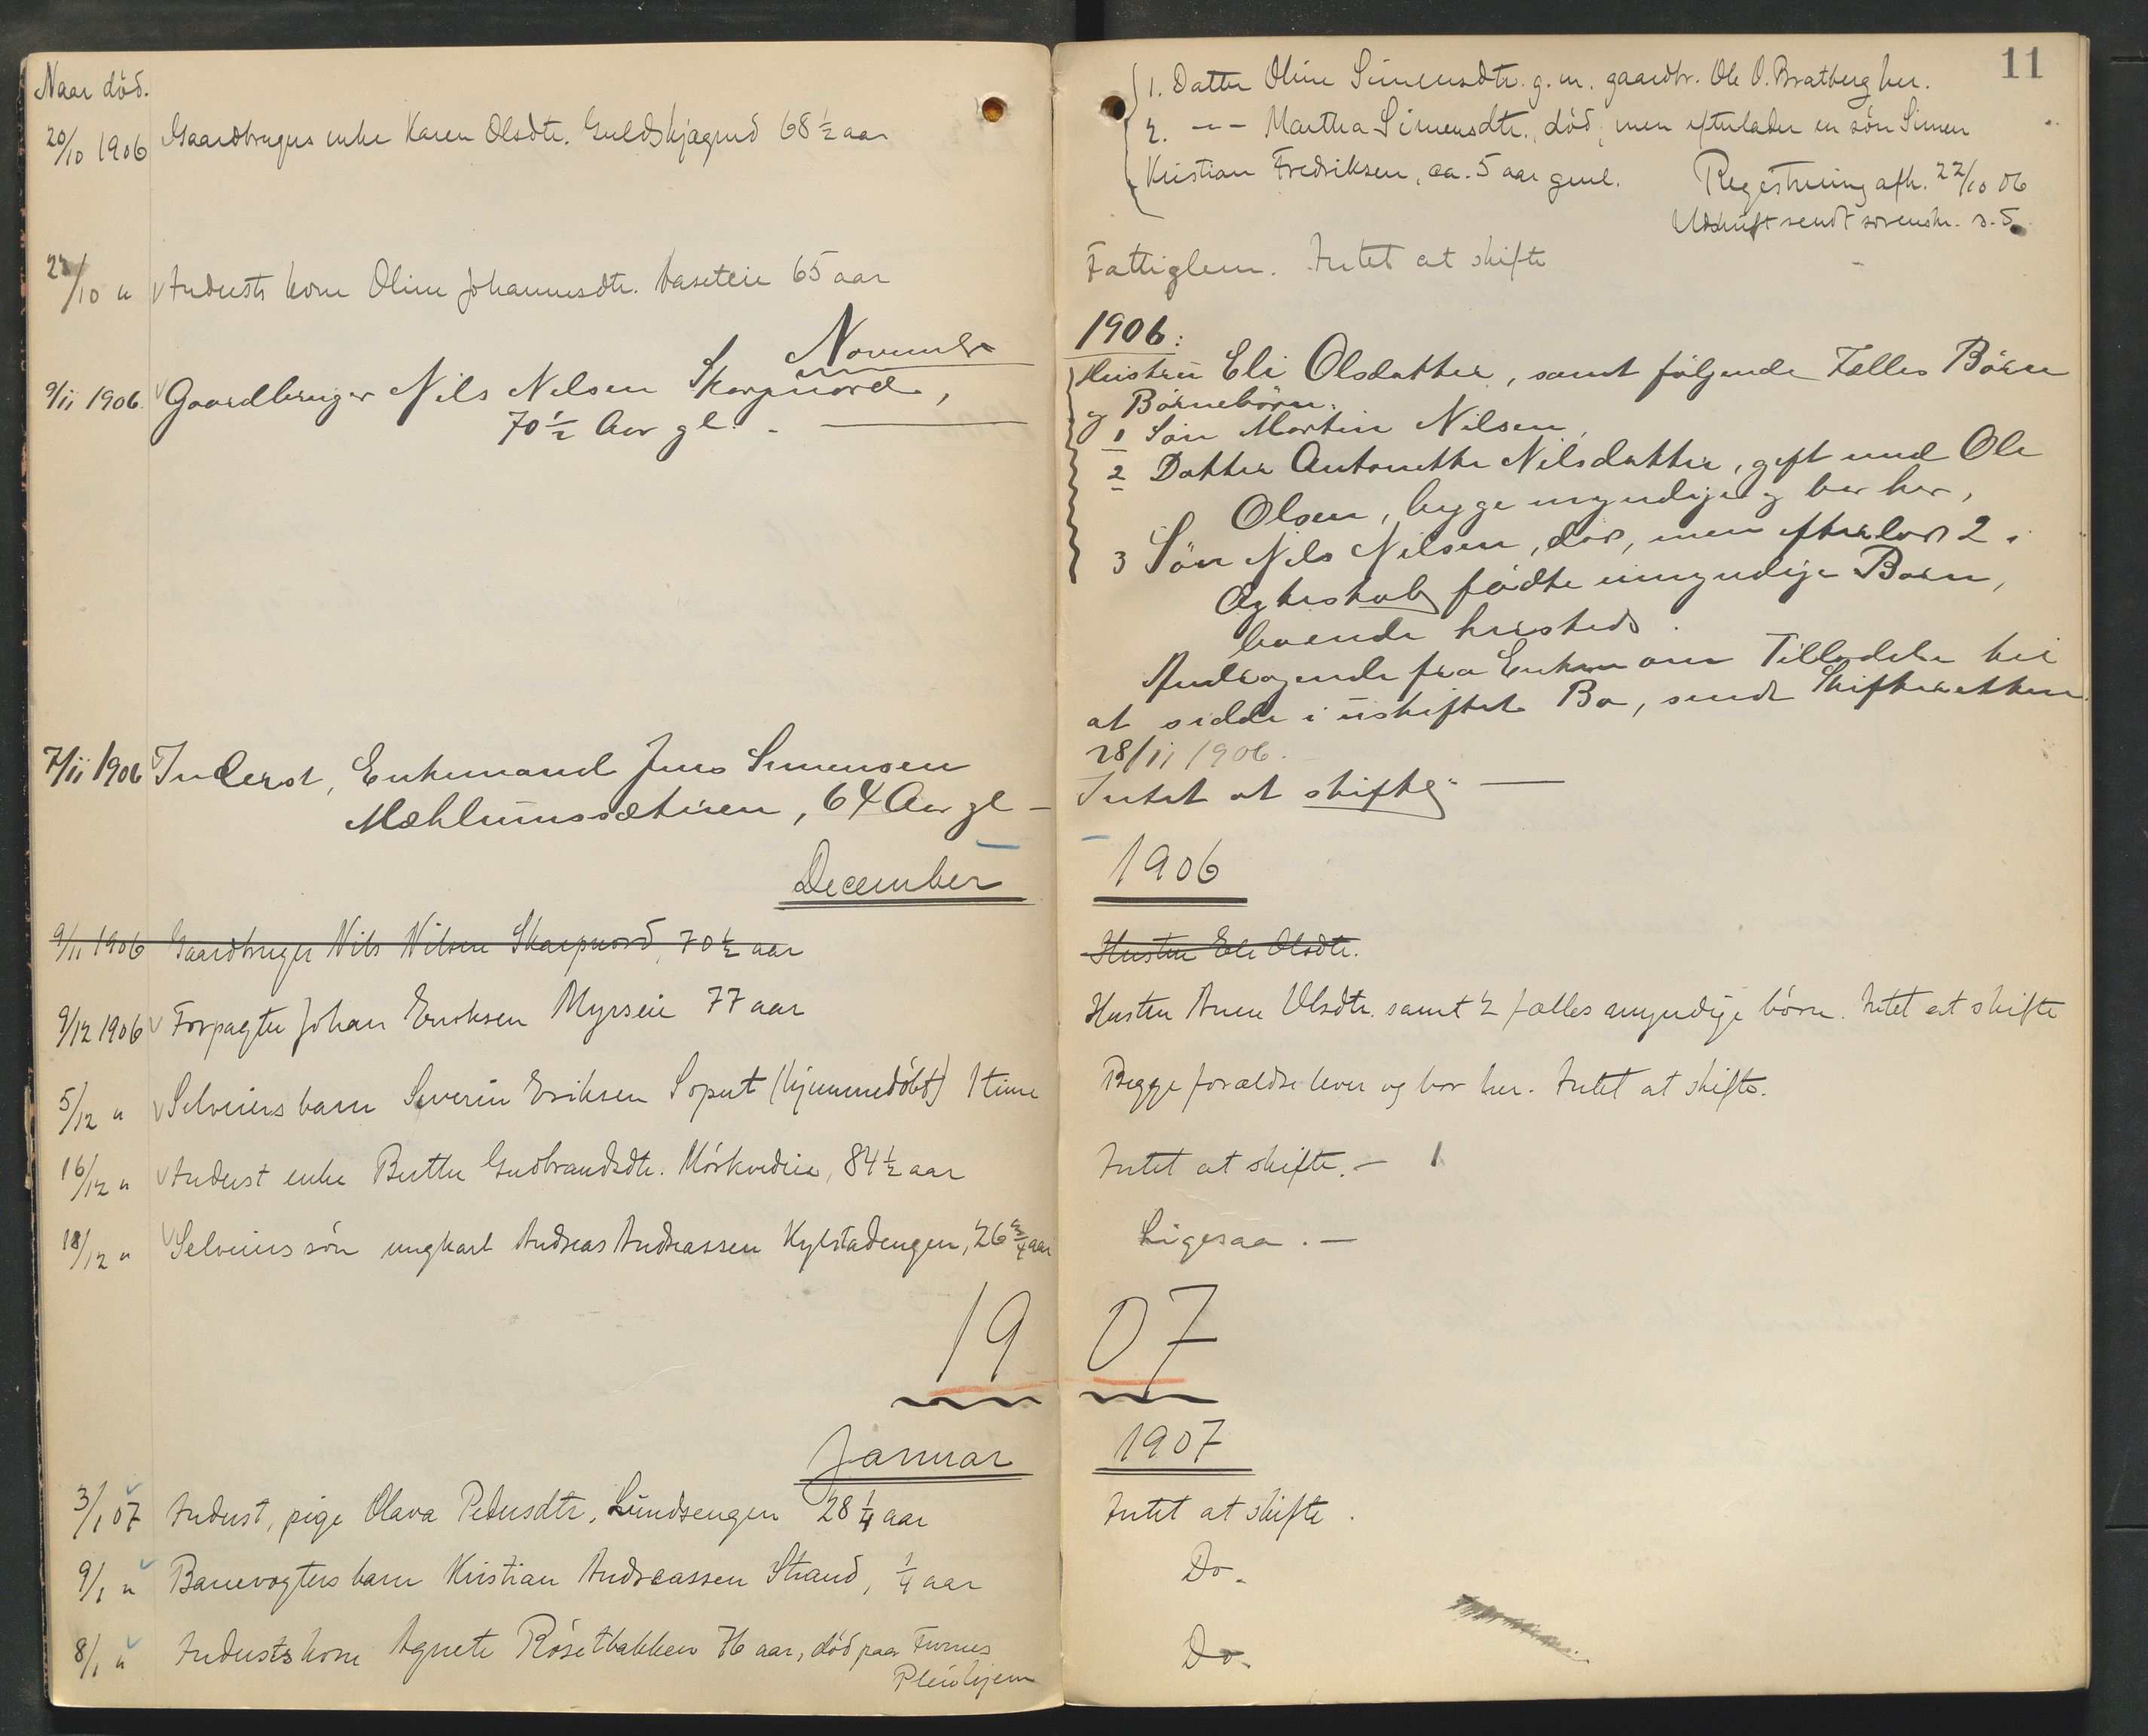 Naar död.
20/10 1906 Gaardbrugers enke Karen Olsdtr. Guldskjægrud 68 1/2 aar
22/10 " Indersts kone Oline Johannesdtr. 65 aar
November
9/11 1906. Gaardbruger Nils Nilsen Skarpnord,
70 1/2 Aar gl. -
7/11 1906 Inderst, Enkemand Jens Simensen
Mæhlumssæteren, 64 Aar gl -
December
9/11 1906 Gaardbruger Nils Nilsen Skarpnord, 70 1/2 aar
9/12 1906 Forpagter Johan Eriksen Myrseie 77 aar
5/12 " Selveiers barn Severin Eriksen Soput (hjemmedöbt) 1 time
16/12 " Inderst enke Berthe Gudbrandsdtr. Mörkvedeie, 84 1/2 aar
18/12 " Selveiers sön ungkarl Andreas Andreassen Kylstadengen, 26 3/4 aar
19
Januar
3/1 07 Inderst, pige Olava Pedersdtr. Lundsengen 28 1/4 aar
9/1 " Banevogters barn Kristian Andreassen Strand, 1/4 aar
8/1 " Inderstskone Agnete Rösetbakken 76 aar, död paa Furnes
Pleiehjem
11
1. Datter Oline Simensdtr. g. m. gaardbr. Ole O. Bratberg her.
2. -"- Martha Simensdtr., död, men efterlader en sön Simen
Kristian Fredriksen, ca. 5 aar gml. Registrering afh. 22/10 06
Udskrift sendt sorenskr. s. D.
Fattiglem. Intet at skifte
1906:
Hustru Eli Olsdatter, samt følgende Fælles Børn
og Børnebørn:
1 Søn Martin Nilsen,
2 Datter Antonette Nilsdatter, gift med Ole
Olsen, begge myndige og bor her,
3 Søn Nils Nilsen, død, men efterlod 2 i
Ægteskab fødte umyndige Børn,
boende hersteds.
Andragende fra Enken om Tilladelse til
at sidde i uskiftet Bo, sendt Skifteretten
28/11 1906.
Intet at skifte. -
1906
Hustru Eli Olsdtr.
Hustru Anne Olsdtr. samt 2 fælles myndige börn. Intet at skifte
Begge forældre lever og bor her. Intet at skifte.
Intet at skifte. -
Ligesaa. -
07
1907
Intet at skifte.
Do.
Do.